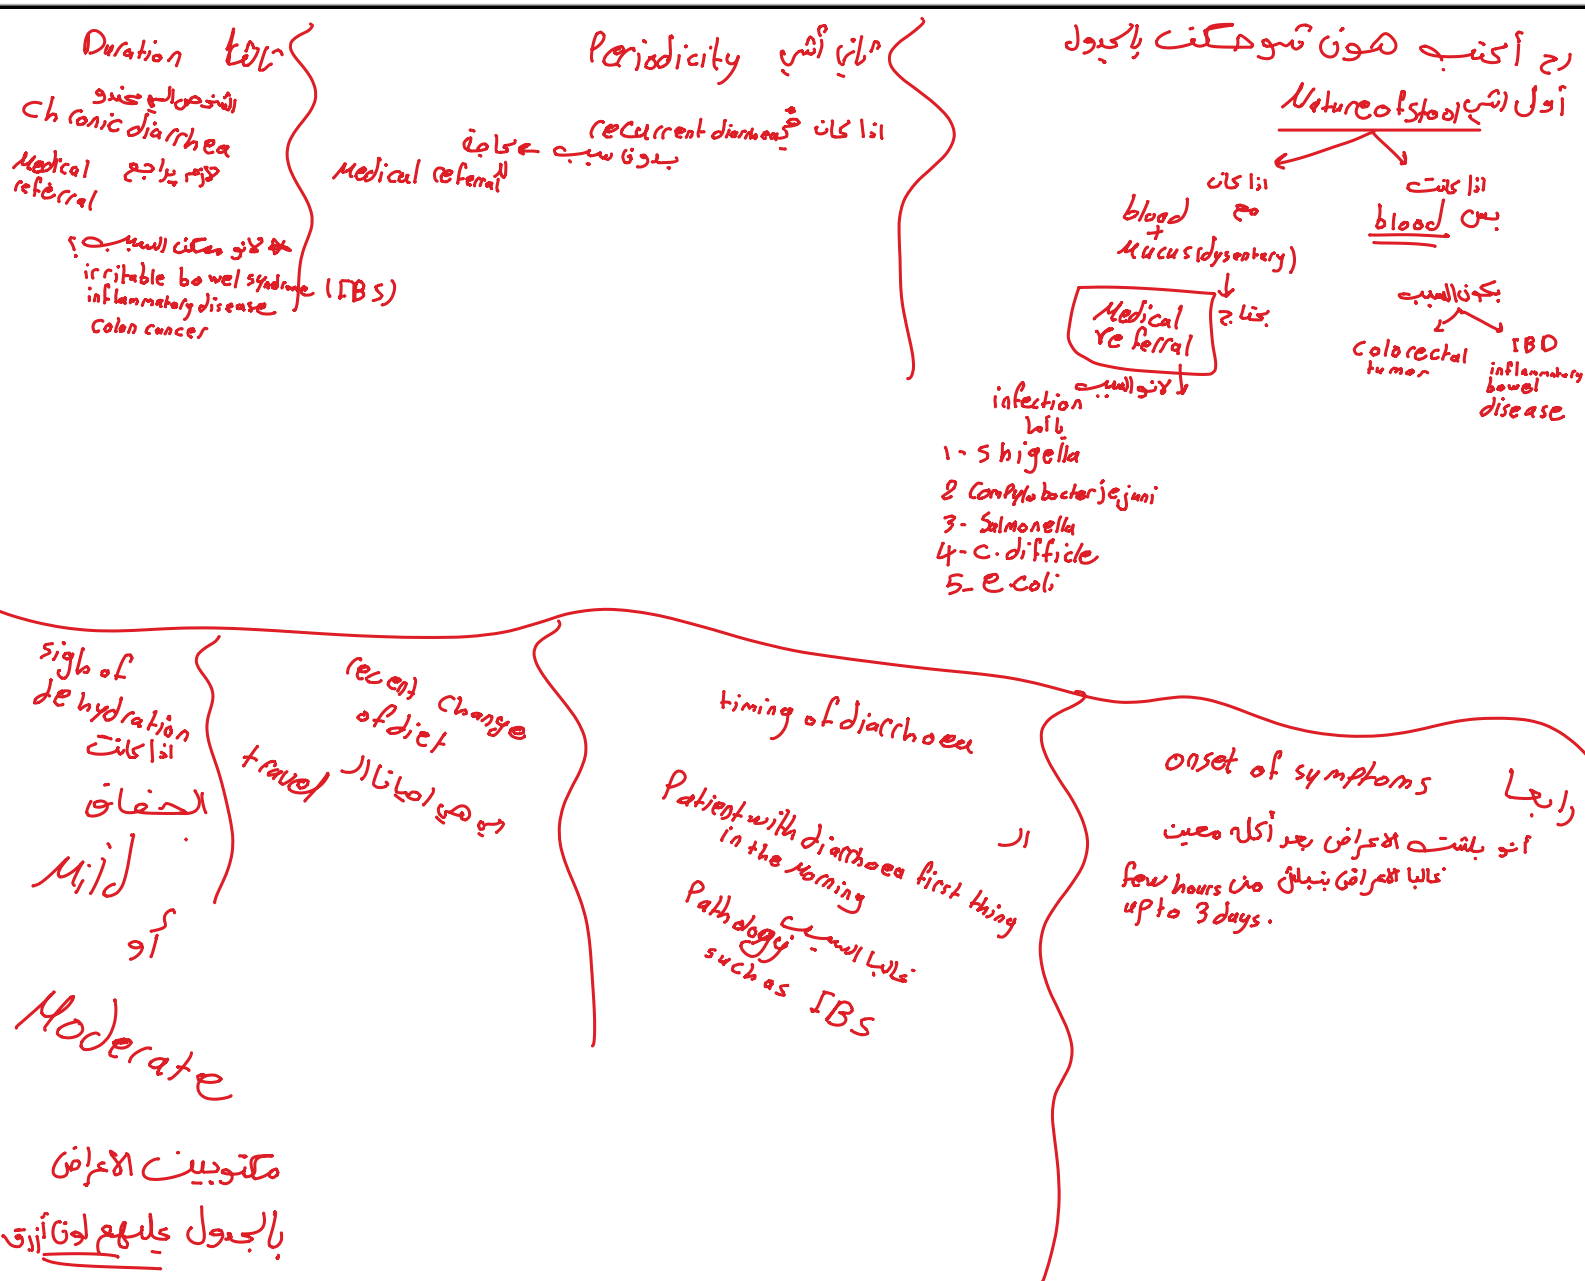 رح أكتب هون شو حكت بالجدول
أول اشي Nature of stool
اذا كانت
بس blood
بكون السبب
colorectal
tumor
IBD
inflammatory
bowel
disease
اذا كان
مع blood
+
Mucus (dysentery)
بحتاج
Medical
referral
لانو السبب
infection
بال
1- Shigella
2 Compylobacter jejuni
3- Salmonella
4- C. difficle
5- e coli
ثاني أشي Periodicity
اذا كان في recurrent diarrhea
بدون سبب بحاجة
Medical referral
ثالثا Duration
الشخص الي عندو
Chronic diarrhea
لازم يراجع Medical
referral
لانو ممكن السبب ؟
irritable bowel syndrome (IBS)
inflammatory disease
Colon cancer
رابعا onset of symptoms
أنو بلشت الاعراض بعد أكله معينه
غالبا الاعراض بتبلش من few hours
up to 3 days.
timing of diarrhoea
ال
Patient with diarrhoea first thing
in the morning
غالبا السبب Pathology
such as IBS
recent change
of diet
ال travel
sigh of
dehydration
اذا كانت
الجفاف
Mild
أو
Moderate
مكتوبين الاعراض
بالجدول عليهم لون أزرق